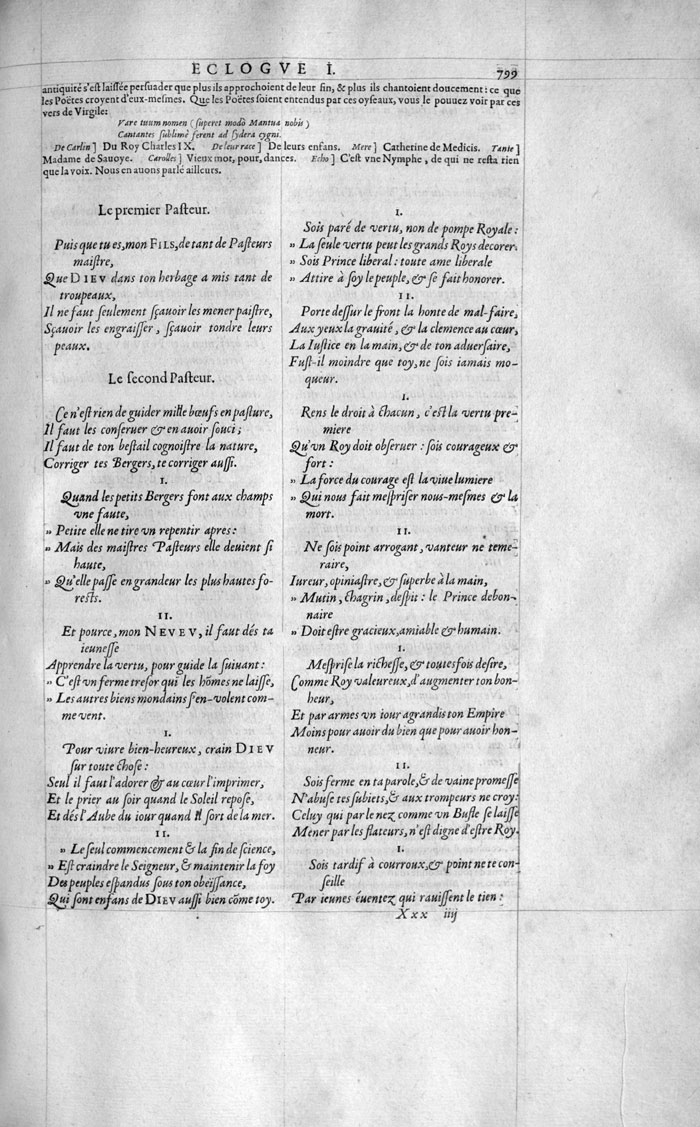 ECLOGVE I.
799
antiquité s'est laissée persuader que plus ils approchoient de leur fin, & plus ils chantoient doucement: ce que
les Poëtes croyent d'eux-mesmes. Que les Poëtes soient entendus par ces oyseaux, vous le pouuez voir par ces
vers de Virgile:
Vare tuum nomen (superet modò Mantua nobis)
Cantantes sublimè ferent ad sydera cygni.
De Carlin] Du Roy Charles IX. De leur race] De leurs enfans. Mere] Catherine de Medicis. Tante]
Madame de Sauoye. Carolles] Vieux mot, pour, dances. Echo] C'est vne Nymphe, de qui ne resta rien
que la voix. Nous en auons parlé ailleurs.
Le premier Pasteur.
Puis que tu es, mon FILS, de tant de Pasteurs
maistre,
Que DIEV dans ton herbage a mis tant de
troupeaux,
Il ne faut seulement sçauoir les mener paistre,
Sçauoir les engraisser, sçauoir tondre leurs
peaux.
Le second Pasteur.
Ce n'est rien de guider mille bœufs en pasture,
Il faut les conseruer & en auoir souci;
Il faut de ton bestail cognoistre la nature,
Corriger tes Bergers, te corriger aussi.
I.
Quand les petits Bergers font aux champs
vne faute,
» Petite elle ne tire vn repentir apres:
» Mais des maistres Pasteurs elle deuient si
haute,
» Qu'elle passe en grandeur les plus hautes fo-
rests.
II.
Et pource, mon NEVEV, il faut dés ta
ieunesse
Apprendre la vertu, pour guide la suiuant:
» C'est vn ferme tresor qui les hõmes ne laisse,
» Les autres biens mondains s'en-volent com-
me vent.
I.
Pour viure bien-heureux, crain DIEV
sur toute chose:
Seul il faut l'adorer & au cœur l'imprimer,
Et le prier au soir quand le Soleil repose,
Et dés l'Aube du iour quand il sort de la mer.
II.
» Le seul commencement & la fin de science,
» Est craindre le Seigneur, & maintenir la foy
Des peuples espandus sous ton obeïssance,
Qui sont enfans de DIEV aussi bien cõme toy.
I.
Sois paré de vertu, non de pompe Royale:
» La seule vertu peut les grands Roys decorer.
» Sois Prince liberal: toute ame liberale
» Attire à soy le peuple, & se fait honorer.
II.
Porte dessur le front la honte de mal-faire,
Aux yeux la grauité, & la clemence au cœur,
La Iustice en la main, & de ton aduersaire,
Fust-il moindre que toy, ne sois iamais mo-
queur.
I.
Rens le droit à chacun, c'est la vertu pre-
miere
Qu'vn Roy doit obseruer: sois courageux &
fort:
» La force du courage est la viue lumiere
» Qui nous fait mespriser nous-mesmes & la
mort.
II.
Ne sois point arrogant, vanteur ne teme-
raire,
Iureur, opiniastre, & superbe à la main,
» Mutin, chagrin, despit: le Prince debon-
naire
» Doit estre gracieux, amiable & humain.
I.
Mesprise la richesse, & toutesfois desire,
Comme Roy valeureux, d'augmenter ton bon-
heur,
Et par armes vn iour agrandis ton Empire
Moins pour auoir du bien que pour auoir hon-
neur.
II.
Sois ferme en ta parole, & de vaine promesse
N'abuse tes subiets, & aux trompeurs ne croy:
Celuy qui par le nez comme vn Bufle se laisse
Mener par les flateurs, n'est digne d'estre Roy.
I.
Sois tardif à courroux, & point ne te con-
seille
Par ieunes éuentez qui rauissent le tien:
Xxx iiij